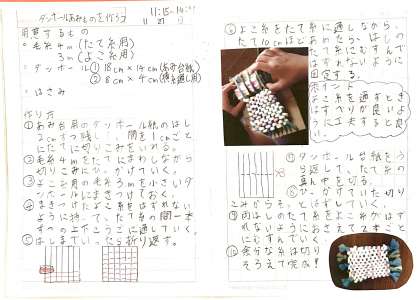 ダンボールあみものを作ろう
11:15~
11 21
用意するもの
・毛糸4m(たて糸用)
3m(よこ糸用)
・ダンボール①18cm×14cm(あみ台紙)
②8cm×4cm(横糸通し用)
・はさみ
作り方
①あみ台用のダンボール紙のはし
2cmずつ残し、間を1cmごと
にたてに切りこみをいれる。
②毛糸4mをたてにまわしながら
切りこみに、かけていく。
③よこ糸用の毛糸3mを小さいダ
ンボールにまきつけておく。
④まきつけたよこ糸をはずれない
ように持って、たて糸の間一本
ずつの上下こうごに通していく。
⑤はしまでいったら折り返す。
⑥よこ糸をたて糸に通しながら、
たて10cmほどあんだら、はしの
たて糸にむすんで
はずれないように
固定する。
ポイント
よこ糸を通すとき
はすべりが良いよ
うに工夫すると良
い。
⑦ダンボール台紙をう
ら返して、たて糸の
真ん中を切る。
⑧かけていた切り
こみからそっとはずしていく。
⑨両はしのたて糸をよこ糸がはず
れないようにおさえて2本ごと
にむすんでいく。
⑩余分な糸は切り
そろえて完成!